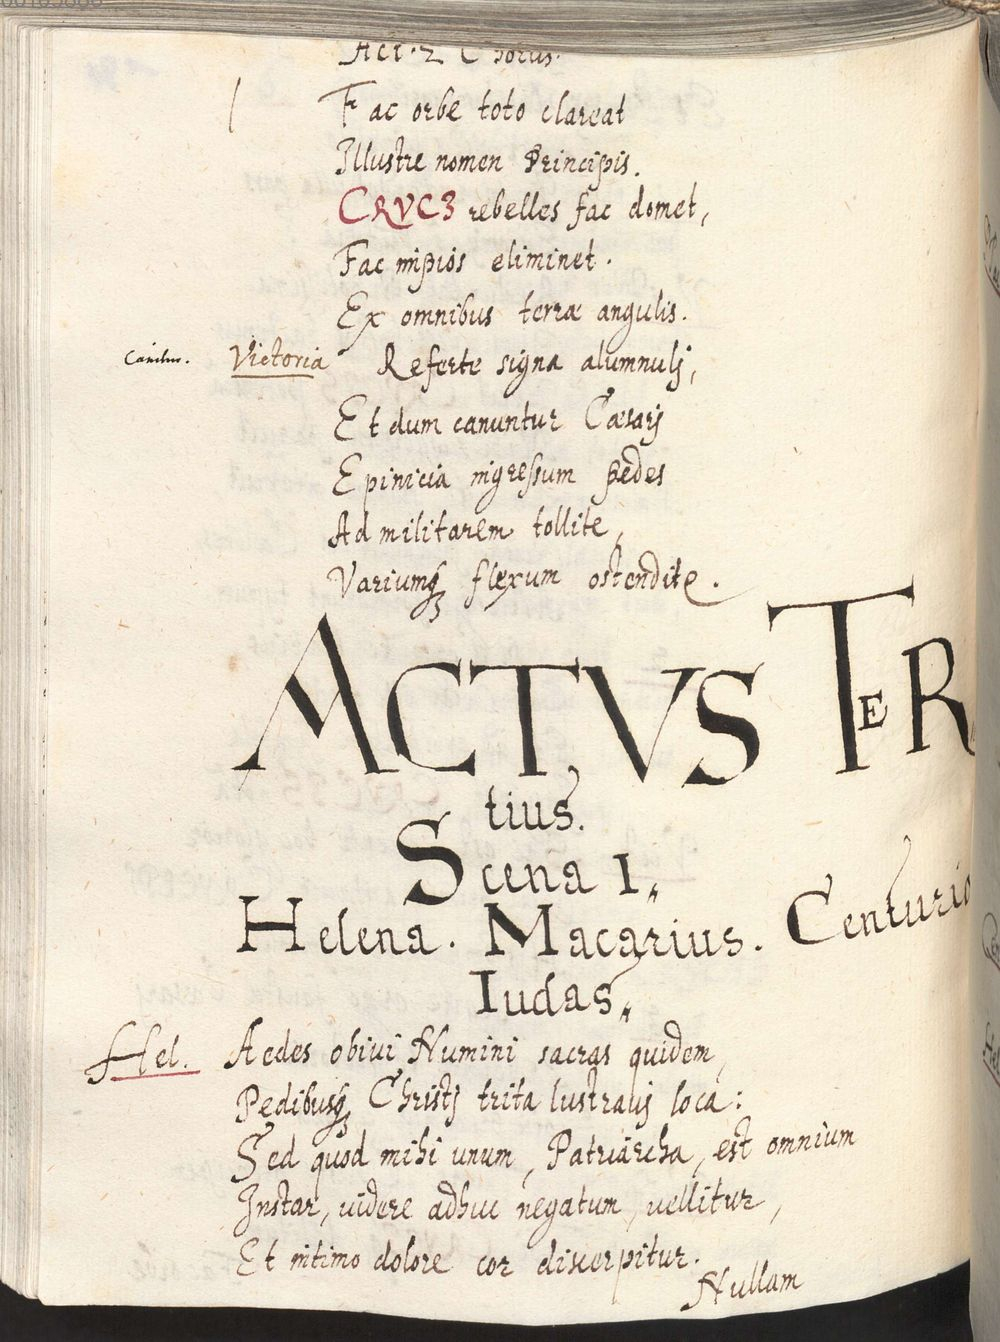 Act. 2 Chorus.
Fac orbe toto clareat
Illustre nomen Principis.
CRVCJ rebelles fac domet,
Fac impios eliminet.
Ex omnibus terræ angulis.
Victoria Referte signa alumnulj,
Et dum canuntur Cæsarj
Epinicia ingressum pedes
Ad militarem tollite,
Variumq; flexum ostendite.
ACTVS TER
tius.
Scena I.,
Helena. Macarius. Centurio
Iudas.,
Hel. Aedes obiui Numini sacras quidem,
Pedibusq; Christj trita lustrauj loca:
Sed quod mihi unum, Patriarcha, est omnium
Instar, uidere adhuc negatum, uellitur,
Et intimo dolore cor discerpitur.
Nullam